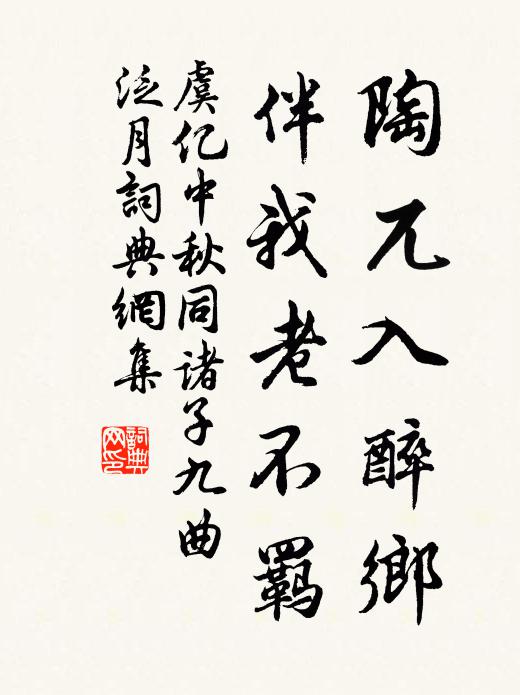 陶兀入醉鄉
伴我老不羈
虞亿中秋同诸子九曲
泛月詞典網集
詞典网印